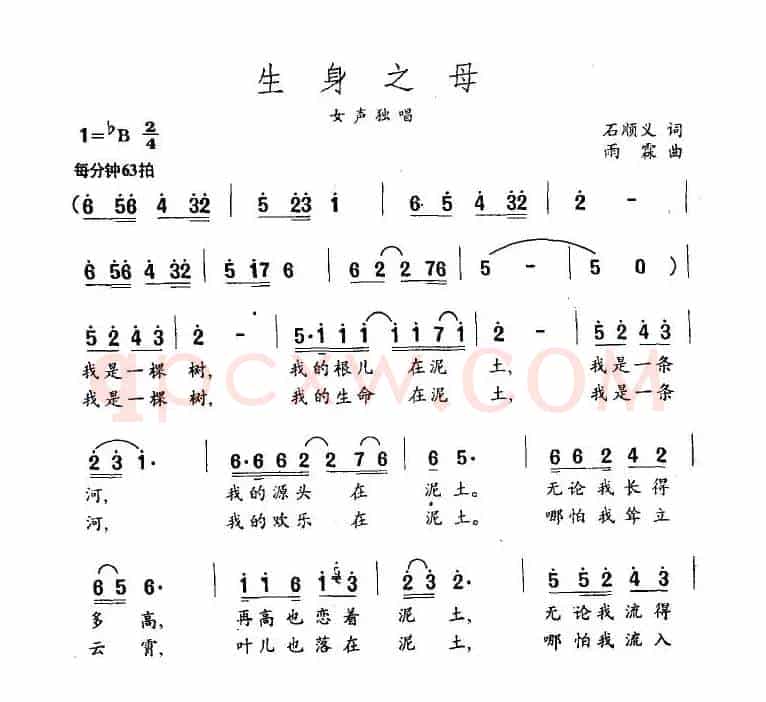 生身之母
女声独唱
1=♭B 2/4
石顺义 词
雨霖 曲
每分钟63拍
(6 56 4 32 | 5 23 1 | 6· 5 4 32 | 2 – |
6 56 4 32 | 5 17 6 | 6 2 2 76 | 5 – | 5 0 )|
5 2 4 3 | 2 – | 5·1 1 1 1 1 7 1 | 2 – | 5 2 4 3 |
我是一棵 树, 我的根儿 在泥 土, 我是一条
我是一棵 树, 我的生命 在泥 土, 我是一条
qpcxw.com
2 3 1· | 6·6 6 2 2 7 6 | 6 5· | 6 6 2 4 2 |
河, 我的源头 在 泥土。 无论我长得
河, 我的欢乐 在 泥土。 哪怕我耸立
6 5 6· | 1 1 6 1 3 | 2 3 2· | 5 5 2 4 3 |
多高, 再高也恋着 泥土, 无论我流得
云霄, 叶儿也落在 泥土, 哪怕我流入